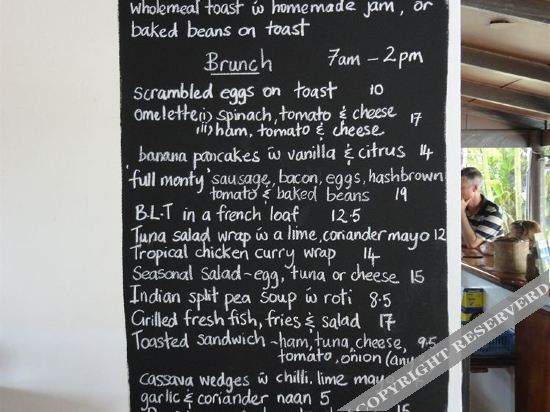 wholemeal toast w homemade jam, or
baked beans on toast
Brunch 7am - 2pm
scrambled eggs on toast 10
omelette (i) spinach, tomato & cheese 17
(ii) ham, tomato & cheese
banana pancakes w vanilla & citrus 14
'full monty' sausage, bacon, eggs, hashbrown
tomato & baked beans 19
B.L.T in a french loaf 12.5
Tuna salad wrap w a lime, coriander mayo 12
Tropical chicken curry wrap 14
Seasonal Salad - egg, tuna or cheese 15
Indian split pea soup w roti 8.5
Grilled fresh fish, fries & salad 17
Toasted sandwich - ham, tuna, cheese, 9.5
tomato, onion (any
cassava wedges w chilli, lime mayo
garlic & coriander naan 5
15
COPYRIGHT RESERVED